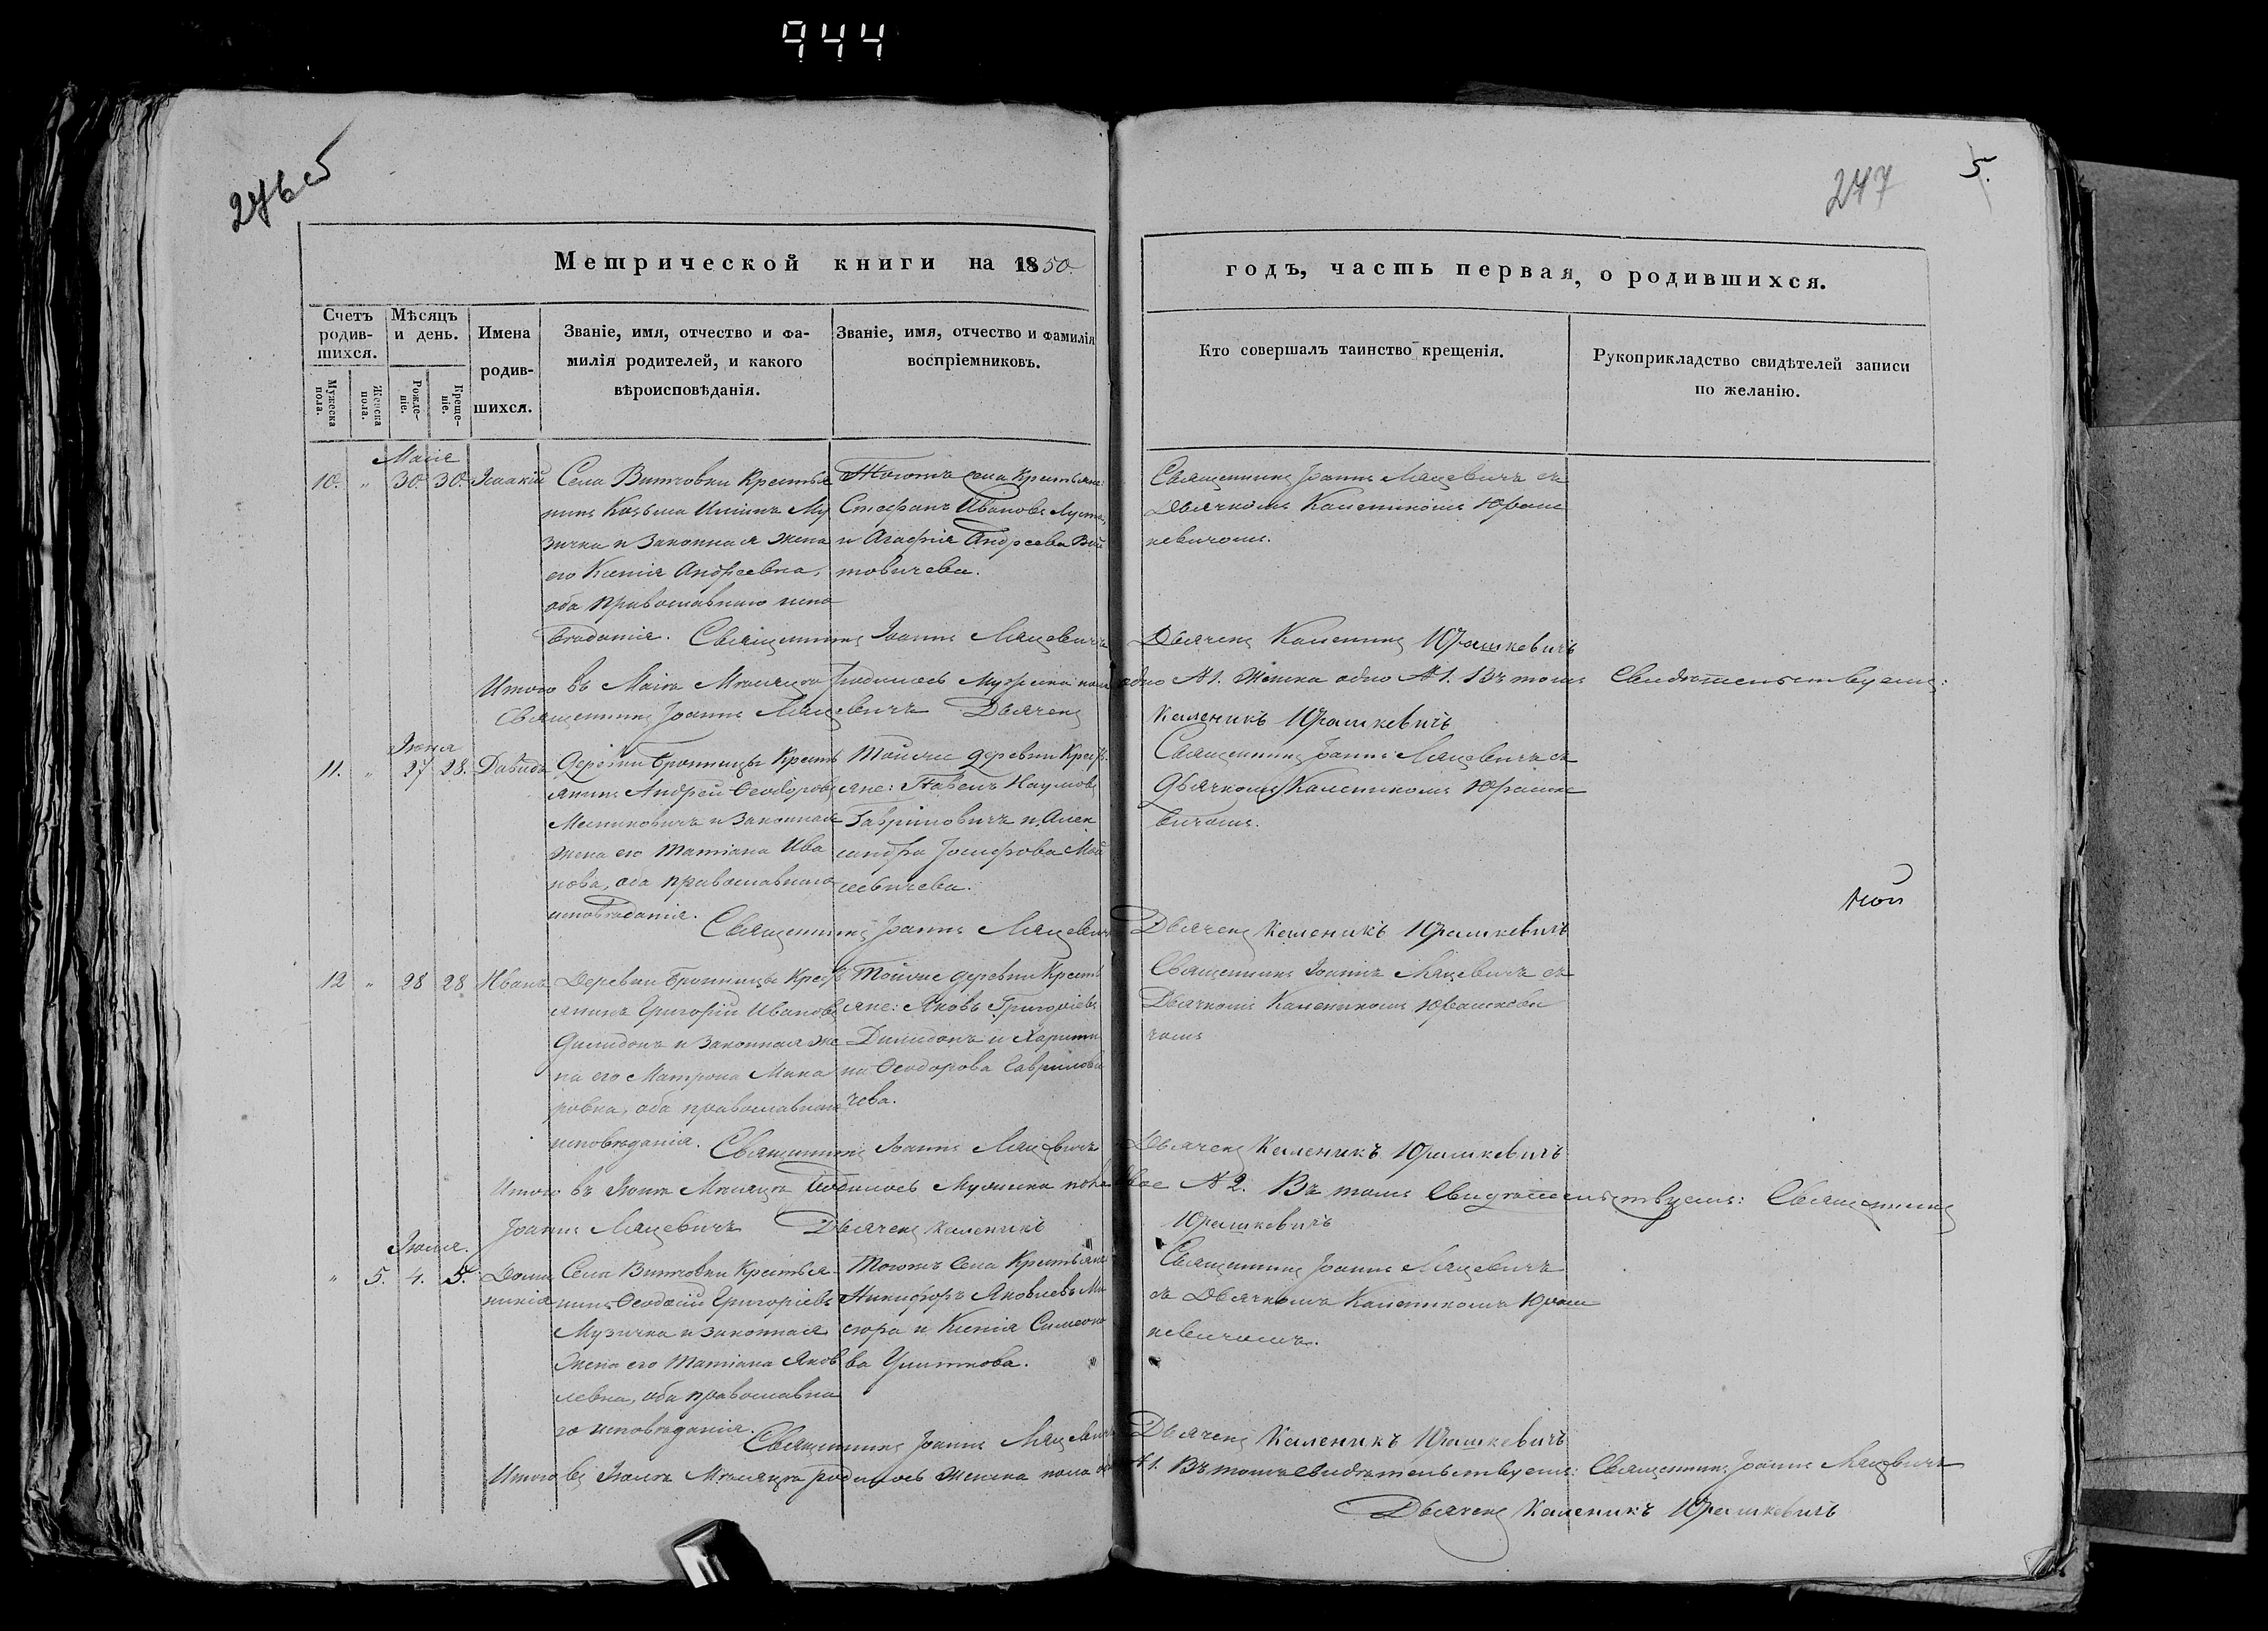 944
276 об
247
5.
Метрической книги на 1850.
годъ, часть первая, о родившихся.
Счетъ родив-
шихся.
Мѣсяцъ
и день.
Имена
родив-
шихся.
Званіе, имя, отчество и фа-
милія родителей, и какого
вѣроисповѣданія.
Званіе, имя, отчество и фамилія
воспріемниковъ.
Кто совершалъ таинство крещенія.
Рукоприкладство свидѣтелей записи
по желанію.
Мужеска
пола.
Женска
пола.
Рожде-
ніе.
Креще-
ніе.
Маія
10. " 30. 30. Исаакій
Села Витчовки Крестья
нинъ Козьма Му
зычка и Законная Жена
его Ксенія Андреевна,
оба Православнаго испо
вѣданія.
Тогожъ Села Крестьяне:
Стефанъ Ивановъ
и Агафія Андреева Вой
товичева.
Священникъ Іоаннъ Мацевичъ съ
Дьячкомъ Калеником Юраш
кевичомъ.
Священникъ Іоаннъ Мацевичъ
Дьячекъ Каленикъ Юрашкевичъ
Итого въ Маіѣ Мѣсяцѣ Родилось Мужеска пола одно №1. Женска одно №1. Въ томъ Свидѣтельствуемъ:
Священникъ Іоаннъ Мацевичъ Дьячекъ Каленикъ Юрашкевичъ
Іюня
11. " 27 28. Давидъ
Деревни Бронницы Кресть
янинъ Андрей Ѳеодоровъ
и Законная
Жена его Татіана Ива
нова, оба православнаго
исповѣданія.
Тойже деревни Кресть
яне: Павелъ Наумовъ
Гавриловичъ и Алек
сандра Іосифова Мой
сеевичева.
Священникъ Іоаннъ Мацевичъ съ
Дьячкомъ Калеником Юрашке
вичомъ.
ной
Священникъ Іоаннъ Мацевичъ
Дьячекъ Каленикъ Юрашкевичъ
12 " 28 28 Иванъ
Деревни Бронницы Кресть
янинъ Григорій Ивановъ
Дилидонъ и Законная же
на его Матрона Мака
ровна, оба православнаго
исповѣданія.
Тойже деревни Кресть
яне: Яковъ Григоріевъ
Дилидонъ и Харити
на Ѳеодорова Гаврилови
чева.
Священникъ Іоаннъ Мацевичъ съ
Дьячкомъ Калеником Юрашкеви
чомъ
Священникъ Іоаннъ Мацевичъ
Дьячекъ Каленикъ Юрашкевичъ
Итого въ Іюнѣ Мѣсяцѣ Родилось Мужеска пола двое №2. Въ томъ Свидѣтельствуемъ: Священникъ
Іоаннъ Мацевичъ Дьячекъ Каленикъ Юрашкевичъ
Іюля.
" 5. 4. 5. Доми
никія
Села Витчовки Крестья
нинъ Ѳеодосій Григоріевъ
Музычка и законная
Жена его Татіана Яков
левна, оба православна
го исповѣданія.
Тогожъ Села Крестьяне
Никифоръ Яковлевъ
и Ксенія Симеоно
ва
Священникъ Іоаннъ Мацевичъ
съ Дьячкомъ Калеником Юраш
кевичомъ.
Священникъ Іоаннъ Мацевичъ
Дьячекъ Каленикъ Юрашкевичъ
Итого въ Іюлѣ Мѣсяцѣ родилось Женска пола одна №1. Въ томъ свидѣтельствуемъ: Священникъ Іоаннъ Мацевичъ
Дьячекъ Каленикъ Юрашкевичъ